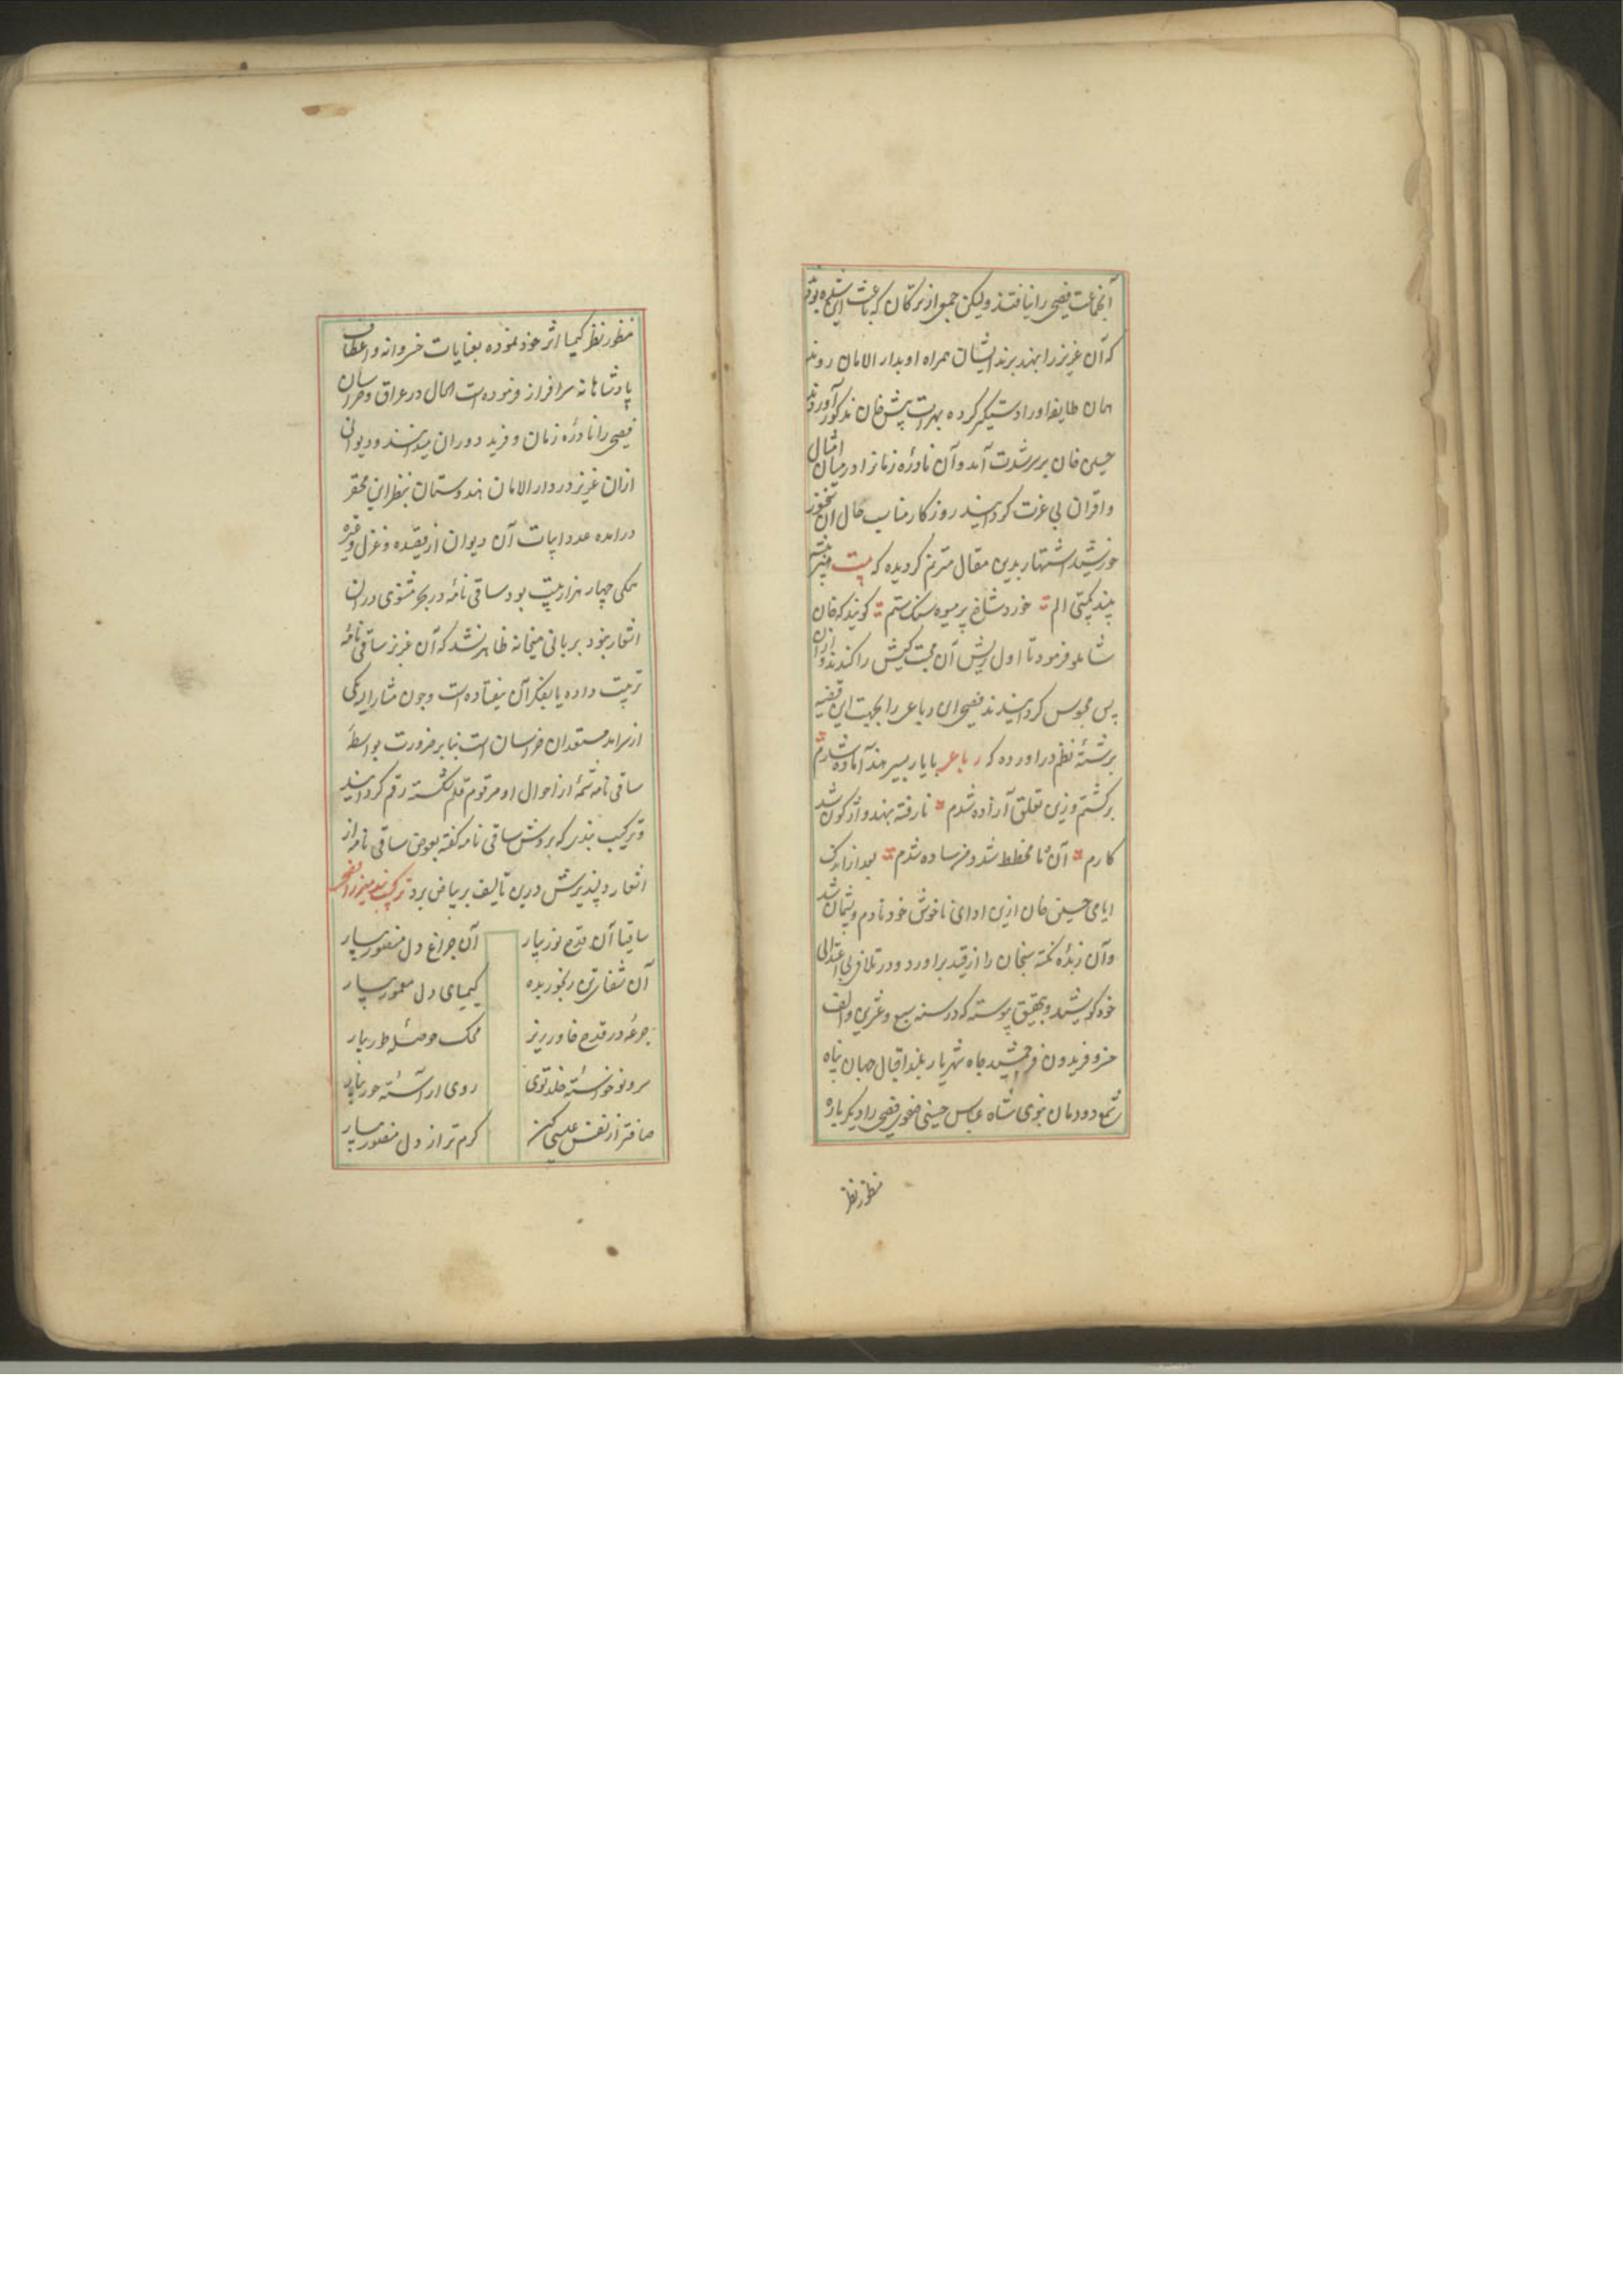 آنجماعت فصیحی را نیافتند ولیکن جمعی از بزرگان که باعث این شده بودند
که آن عزیز را بهند برند ایشان همراه او بدار الامان روند
همان طایفه او را دستگیر کرده بهرات پیش خان مذکور آوردند
حسین خان بر سر شدت آمد و آن نادرهٔ زمانرا در میان امثال
و اقران بی عزت گردانید روزکار مناسب حال آن سخنور
خورشید اشتهار بدین مقال مترنم گردیده که بیت هنر
بیند بگیتی الم خورد شاخ پر میوه سنک ستم کویند که خان
شاملو فرمود تا اول ریش آن محبت کیش را کندند و ازان
پس محبوس کردانیدند فصیحی این رباعی را بجهت این قضیه
برشتهٔ نظم در آورده که رباعی با یار بسیر هند آماده شدم
برکشتم و زین تعلق آزاده شدم نا رفته بهند واژکون شد
کارم آن نا مخطط شد و من ساده شدم بعد از اندک
ایامی حسین خان ازین ادای ناخوش خود نادم و پشیمان شد
و آن زبدهٔ نکته سنجان را از قید برآورد و در تلافی بی اعتدالی
خود کوشید و بتحقیق پیوسته که در سنه سبع و عشرین و الف
خسرو فریدون فر جمشید جاه شهریار بلند اقبال جهان پناه
شمع دودمان نبوی شاه عباس حسینی صفوی فصیحی را دیگر باره
منظور نظر
منظور نظر کیمیا اثر خود نموده بعنایات خسروانه و اعطاف
پادشاهانه سرافراز فرموده است الحال در عراق و خراسان
فصیحی را نادرهٔ زمان و فرید دوران میدانند و دیوانی
ازان عزیز در دار الامان هندوستان بنظر این محقر
درآمده عدد ابیات آن دیوان از قصیده و غزل و غیره
همکی چهار هزار بیت بود ساقی نامه در بحر مثنوی دران
اشعار نبود بر بانی میخانه ظاهر نشد که آن عزیز ساقی نامه
ترتیب داده یا بفکر آن نیفتاده است و چون مشار الیه یکی
از سرآمد مستعدان خراسان است بنابر ضرورت بواسطهٔ
ساقی نامه شمهٔ از احوال او مرقوم قلم شکسته رقم کردانید
و ترکیب بندی که بروش ساقی نامه کفته بعوض ساقی نامه از
اشعار دلپذیرش درین تألیف بر بیاض برد ترکیب بند میرزا فصیحی
ساقیا آن قدح نور بیار آن چراغ دل منصور بیار
آن شفای تن رنجور بده کیمیای دل معمور بیار
جرعه در قدح خاور ریز محک حوصلهٔ طور بیار
سرو نو خواستهٔ خلد توی روی آراستهٔ حور بیار
صافتر از نفس عیسی کن کرم تر از دل منصور بیار